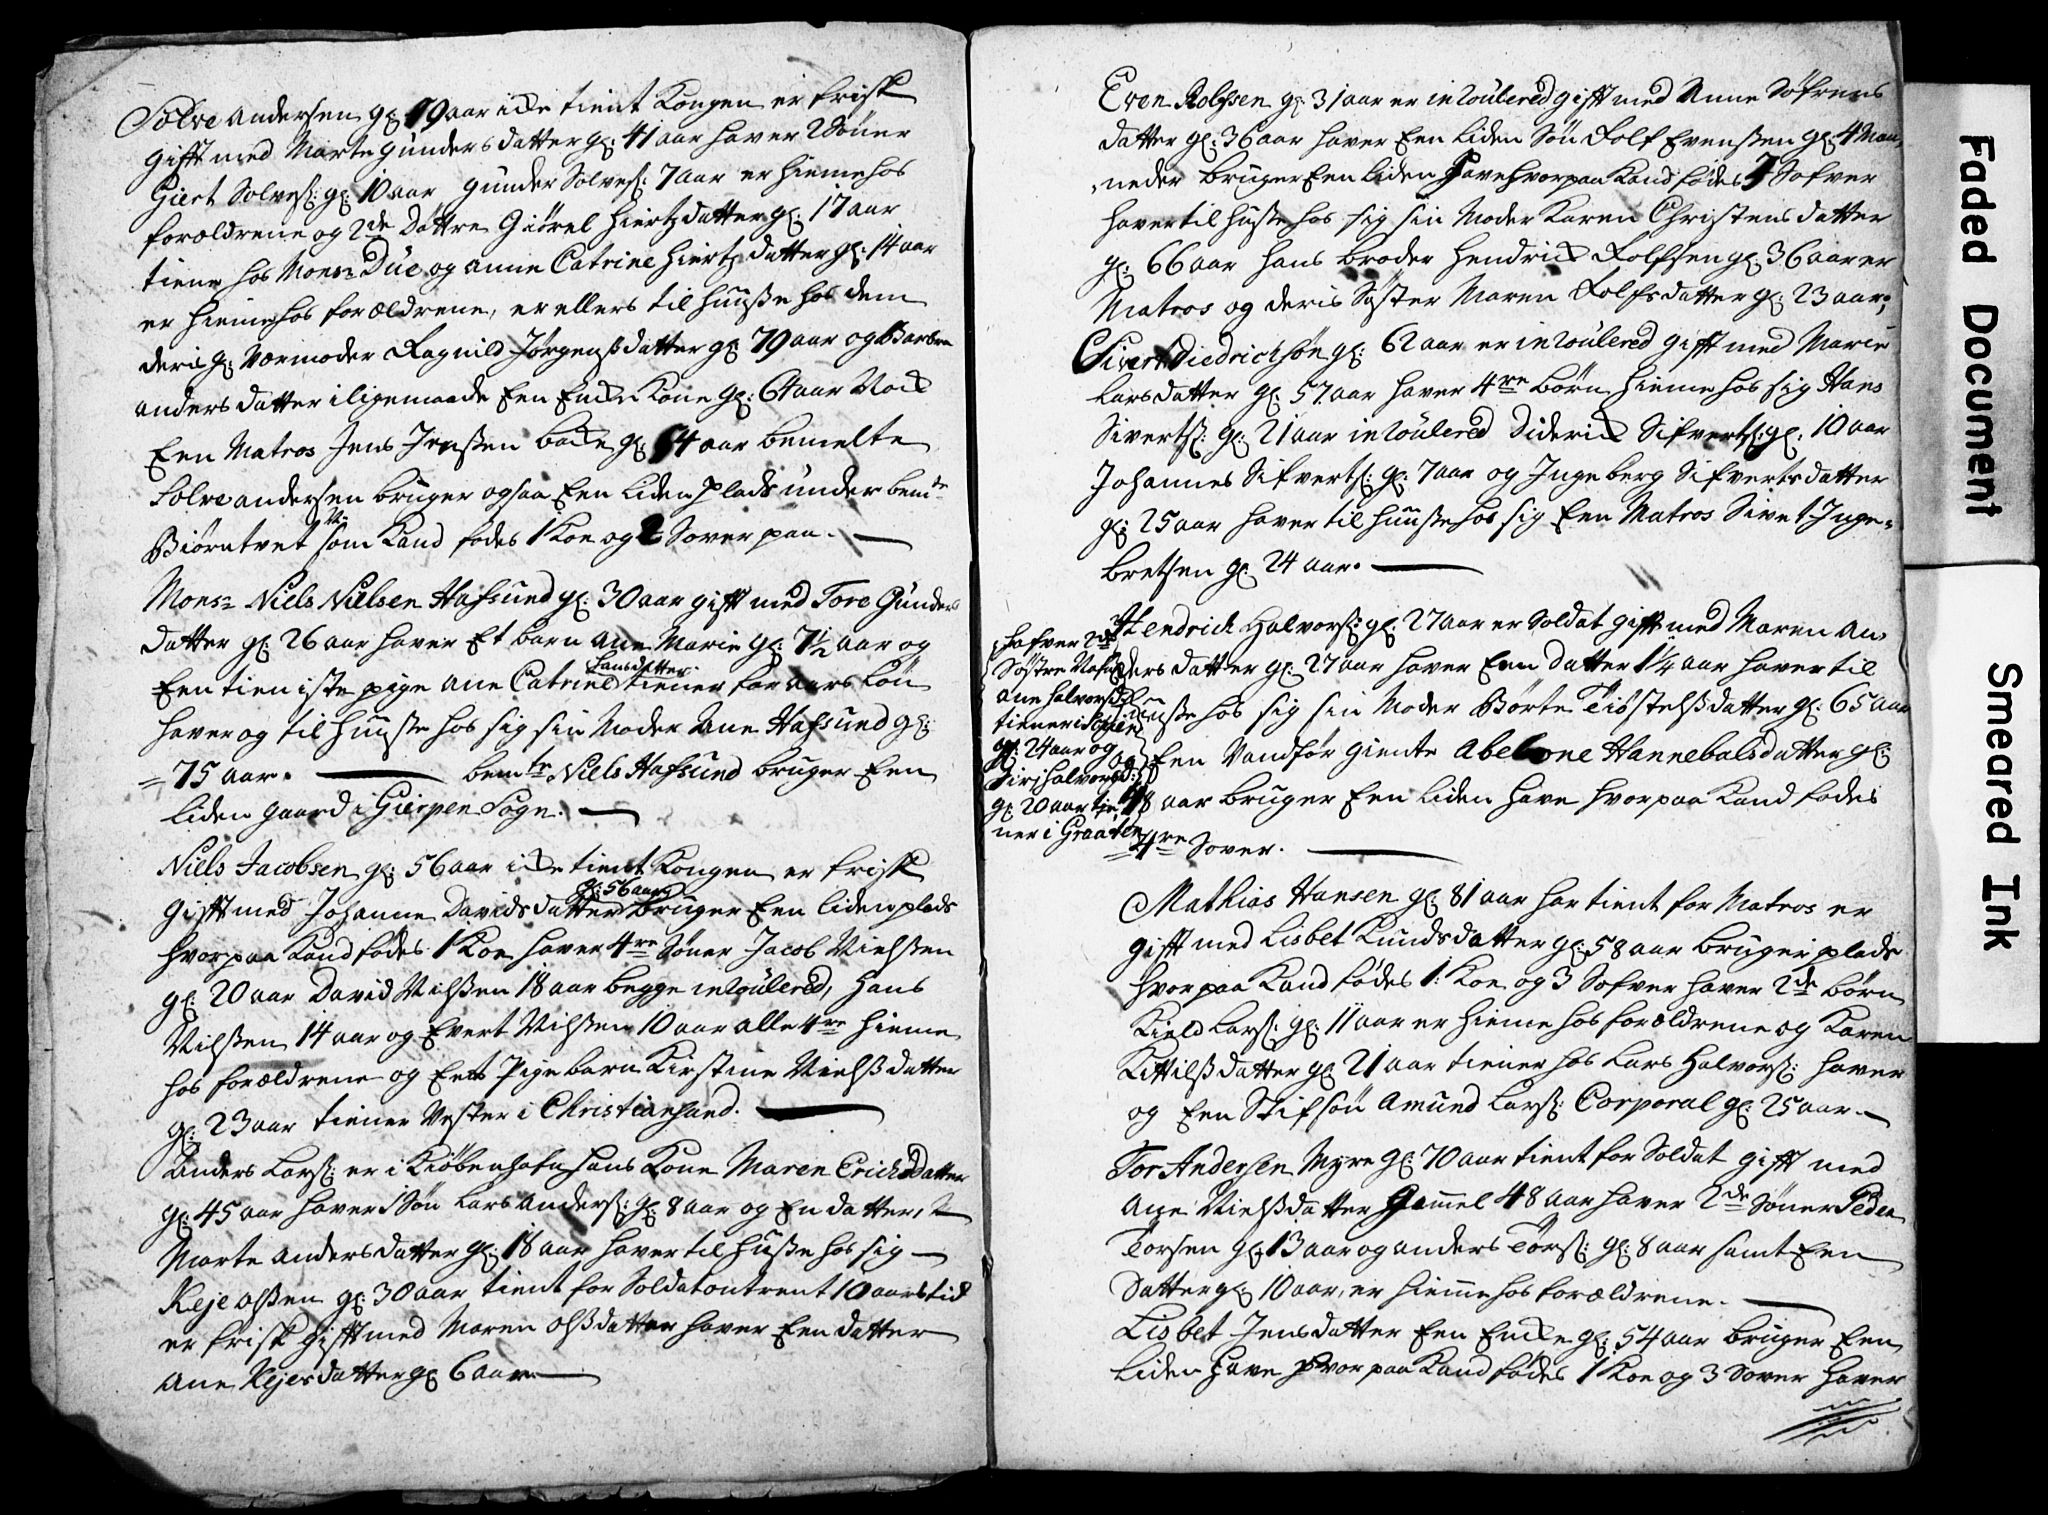 Solve Andersen gl: 49 aar icke tient Kongen er frisk
gifft med Marte Gundersdatter gl: 41 aar haver 2 Sөner
Giert Solves: gl: 10 aar Gunder Solves: 7 aar er hieme hos
forældrene og 2de Döttre Giörel Hiertsdatter gl: 17 aar
tiene hos Monsr Due og Anne Catrine Hiertsdatter gl: 14 aar
er hieme hos forældrene, er ellers til huusse hos dem
deris g: Værmoder Ragnild Jörgenssdatter gl: 79 aar og Barbra
Andersdatter iligemaade Een Encke Kone gl: 64 aar Nock
Een Matros Jens Jenssen Bache gl: 54 aar bemelte
Solve Andersen bruger ogsaa Een liden Plads under bemte
Biörntvet som Kand födes 1 Koe og 2 Sover paa.
Monsr Niels Nielsen Hafsund gl: 30 aar gifft med Tore Gunders
datter gl: 26 aar haver Et barn Ane Marie gl: 7½ aar og
Een tieniste pige Ane Catrine Hansdatter tiener for aars Lön
haver og til huusse hos sig sin Moder Ane Hafsund gl:
75 aar. bemte Niels Hafsund bruger Een
liden gaard i Gierpen Sogn.
Niels Jacobsen gl: 56 aar icke tient Kongen er frisk
gifft med Johanne Davidsdatter gl: 56 aar bruger Een liden plads
hvorpaa Kand födes 1 Koe haver 4re Sөner Jacob Nielssen
gl: 20 aar David Nilssen 18 aar begge inroulered, Hans
Nilssen 14 aar og Evert Nilssen 10 aar alle 4re hieme
hos forældrene og Eet Pigebarn Kirstine Nielssdatter
gl: 23 aar tiener Vester i Christiansand.
Anders Lars: er i Kiöbenhafn hans Kone Maren Erichsdatter
gl: 45 aar haver 1 Sön Lars Anders: gl: 8 aar og En datter
Marte Andersdatter gl: 18 aar haver til husse hos sig
Keje Olssen gl: 30 aar tient for Soldat omtrent 10 aars tid
er frisk gifft med Maren Olssdatter haver Een datter
Ane Kejesdatter gl: 6 aar
Even Rolfssen gl: 31 aar er inroulered gifft med Anne Söfrens
datter gl: 36 aar haver Een liden Sön Rolf Evenssen gl: 4 Maa,
neder bruger Een liden Have hvorpaa Kand födes 7 Sofver
haver til husse hos sig sin Moder Karen Christensdatter
gl: 66 aar hans broder Hendrick Rolfsen gl: 36 aar er
Matros og deris Sÿster Maren Rolfsdatter gl: 23 aar;
Sivert Diedrichsön gl: 62 aar er inroulered gifft med Marie
Larsdatter gl: 57 aar haver 4re börn hieme hos sig Hans
Siverts: gl: 21 aar inroulered Diderick Sifverts: gl: 10 aar
Johannes Sifverts: gl: 7 aar og Ingeberg Sifvertsdatter
gl: 25 aar haver til huusse hos sig Een Matros Sivet Inge=
bretsen gl: 24 aar.
Hendrick Halvors: gl: 27 aar er Soldat gifft med Maren An,
ders datter gl: 27 aar haver Een datter 1¼ aar haver til
husse hos sig sin Moder Börte Tiöstelssdatter gl: 65 aar
og Een Vandför giente Abelone Hannebalsdatter gl:
48 aar bruger Een liden Have hvorpaa Kand födes
4re Sover.
hafver 2de
Sÿstre
Ane Halvorsd:
tiener i Schien
gl: 24 aar og
Siri Halvorsd:
gl: 20 aar tie,
ner i Graaten
Mathias Hansen gl: 81 aar har tient for Matros er
gifft med Lisbet Kundsdatter gl: 58 aar bruger 1 plads
hvorpaa Kand födes 1: Koe og 3 Sofver haver 2de börn
Kield Lars: gl: 11 aar er hieme hos forældrene og Karen
Kittilssdatter gl: 21 aar tiener hos Lars Halvors: haver
og Een Stifsön Amund Lars: Corporal gl: 25 aar.
Tor Andersen Myre gl: 70 aar tient for Soldat gifft med
Ane Nielssdatter Gammel 48 aar haver 2de Söner Peder
Torsen gl: 13 aar og Anders Törs: gl: 8 aar samt Een
Datter gl: 10 aar, er hiemme hos forældrene.
Lisbet Jensdatter Een Encke gl: 54 aar bruger Een
liden Have hvor paa Kand födes 1 Koe og 3 Sover haver
Faded Document
Smeared Ink